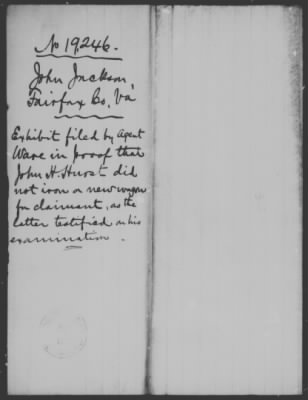 No 19,246.
John Jackson,
Fairfax Co, Va
Exhibit filed by Agent
Ware in proof that
John H. Hurst did
not iron a new wagon
for claimant, as the
latter testified in his
examination.